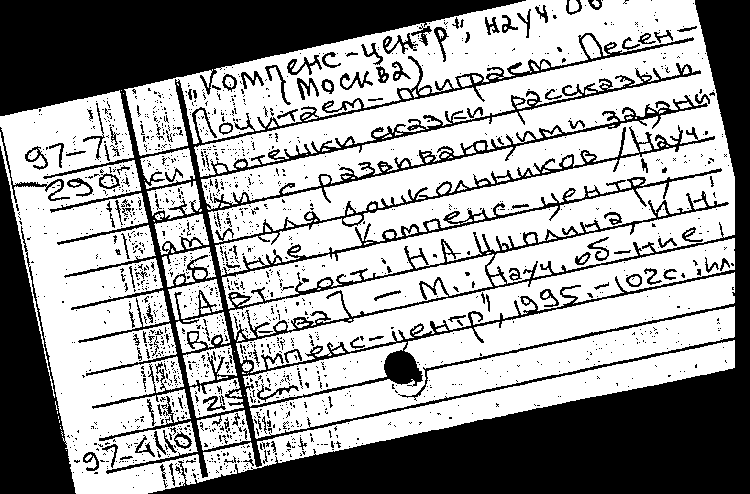 „Компенс-центр", науч. об
(Москва)
Почитаем-поиграем: Песен-
97-7
290
ки, потешки, сказки, рассказы и
стихи с развивающими задани-
ями для дошкольников / Науч.
об-ние „Компенс-центр";
[Авт.-сост.: Н.А. Цыплина, И.Н.
Волкова]. - М.: Науч. об-ние
„Компенс-центр", 1995.-102с.: ил.
25 см.
97-4110